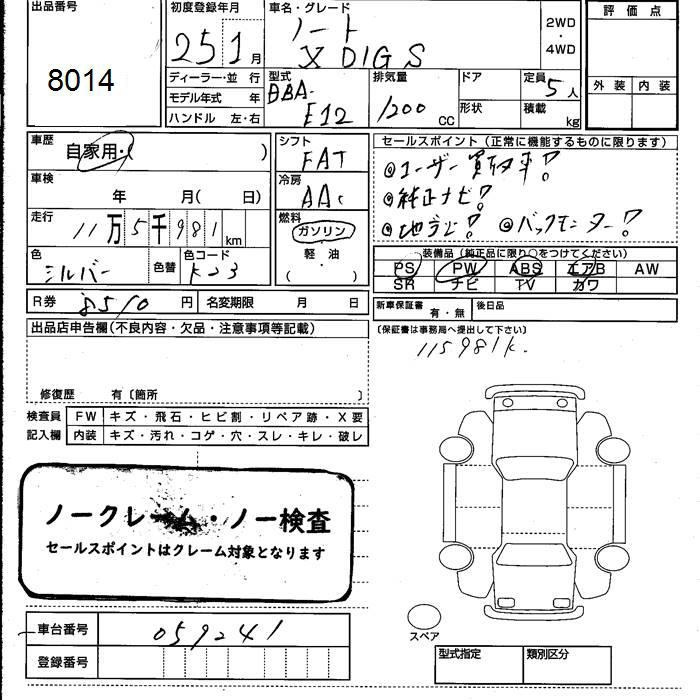 出品番号
8014
初度登録年月
25 1月
車名・グレード
ノート
X DIG S
2WD
・
4WD
評価点
外装 内装
ディーラー・並 行
モデル年式 年
ハンドル 左・右
型式
DBA-
E12
排気量
1200
CC
ドア
形状
定員 5人
積載 kg
車歴
自家用・( )
車検
年 月( 日)
走行
11万5千981km
色
シルバー
色替
色コード
K23
シフト
FAT
冷房
AAC
燃料
ガソリン
軽・油
( )
セールスポイント(正常に機能するものに限ります)
◎ユーザー買取車!
◎純正ナビ!
◎地デジ! ◎バックモニター!
装備品(純正品に限り○をつけてください)
PS PW ABS エアB AW
SR ナビ TV カワ
R券 8510 円
名変期限 月 日
新車保証書
有・無
後日品
(保証書は事務局へ提出して下さい)
115981k.
出品店申告欄(不良内容・欠品・注意事項等記載)
修復歴 有〔箇所 〕
検査員
記入欄
FW キズ・飛石・ヒビ割・リペア跡・X要
内装 キズ・汚れ・コゲ・穴・スレ・キレ・破レ
ノークレーム・ノー検査
セールスポイントはクレーム対象となります
車台番号 059241
登録番号
スペア
型式指定 類別区分